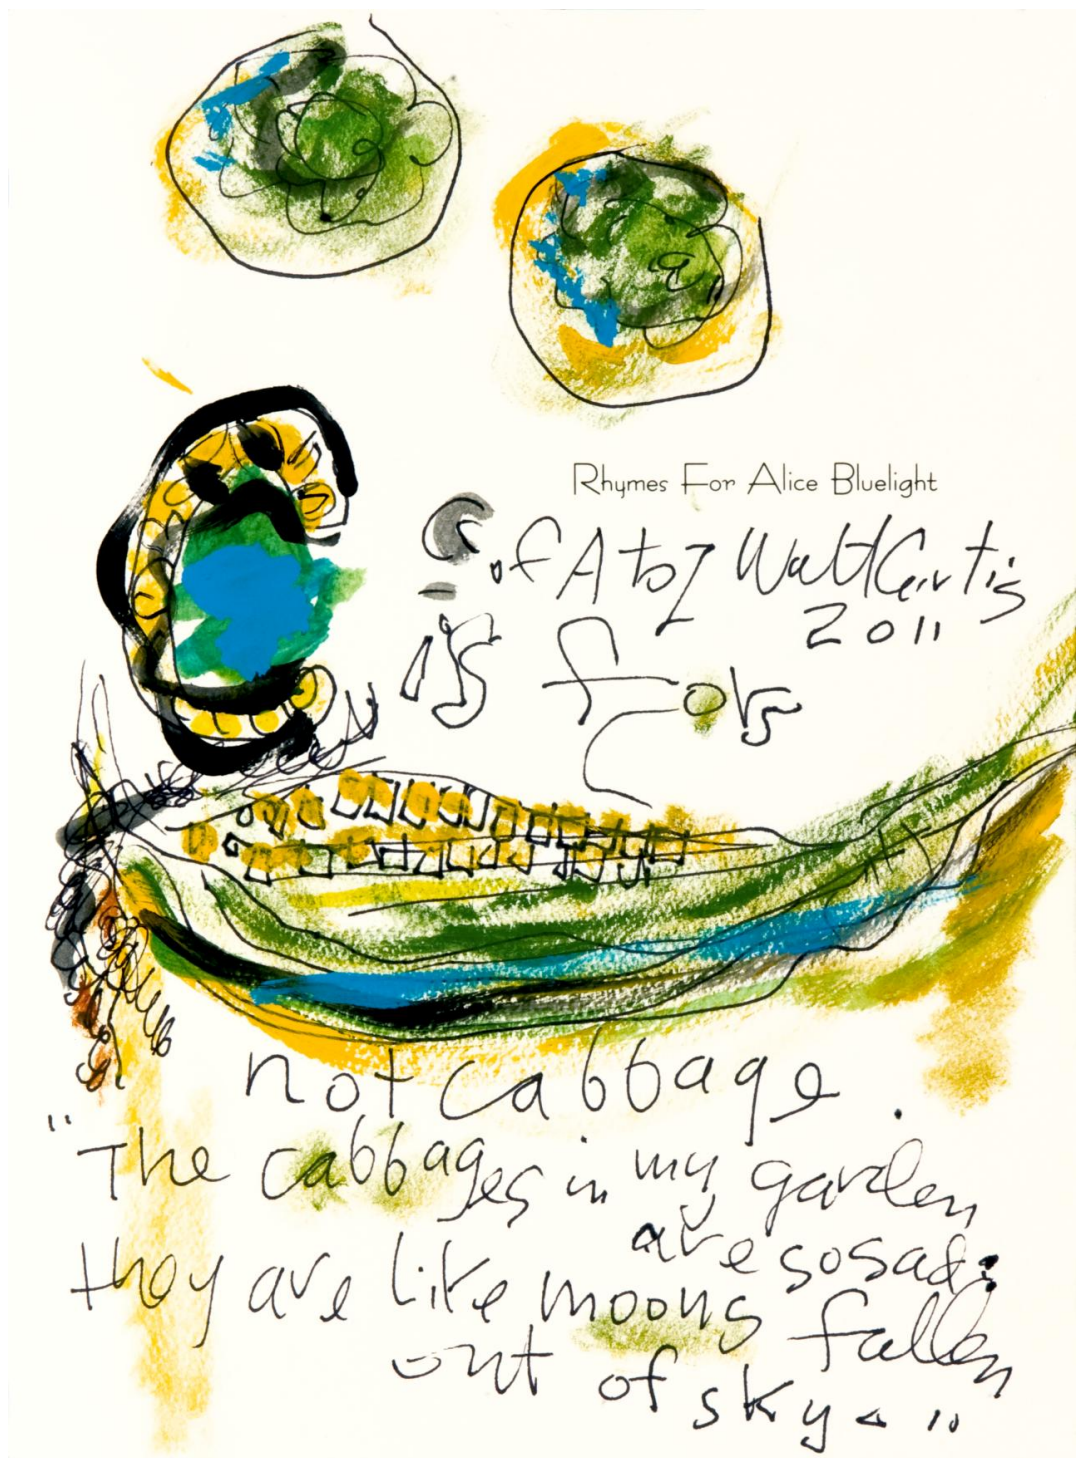 Rhymes For Alice Bluelight
C of A to Z Walt Curtis
2011
C is for
not cabbage.
"The cabbages in my garden
are so sad;
they are like moons fallen
out of sky."